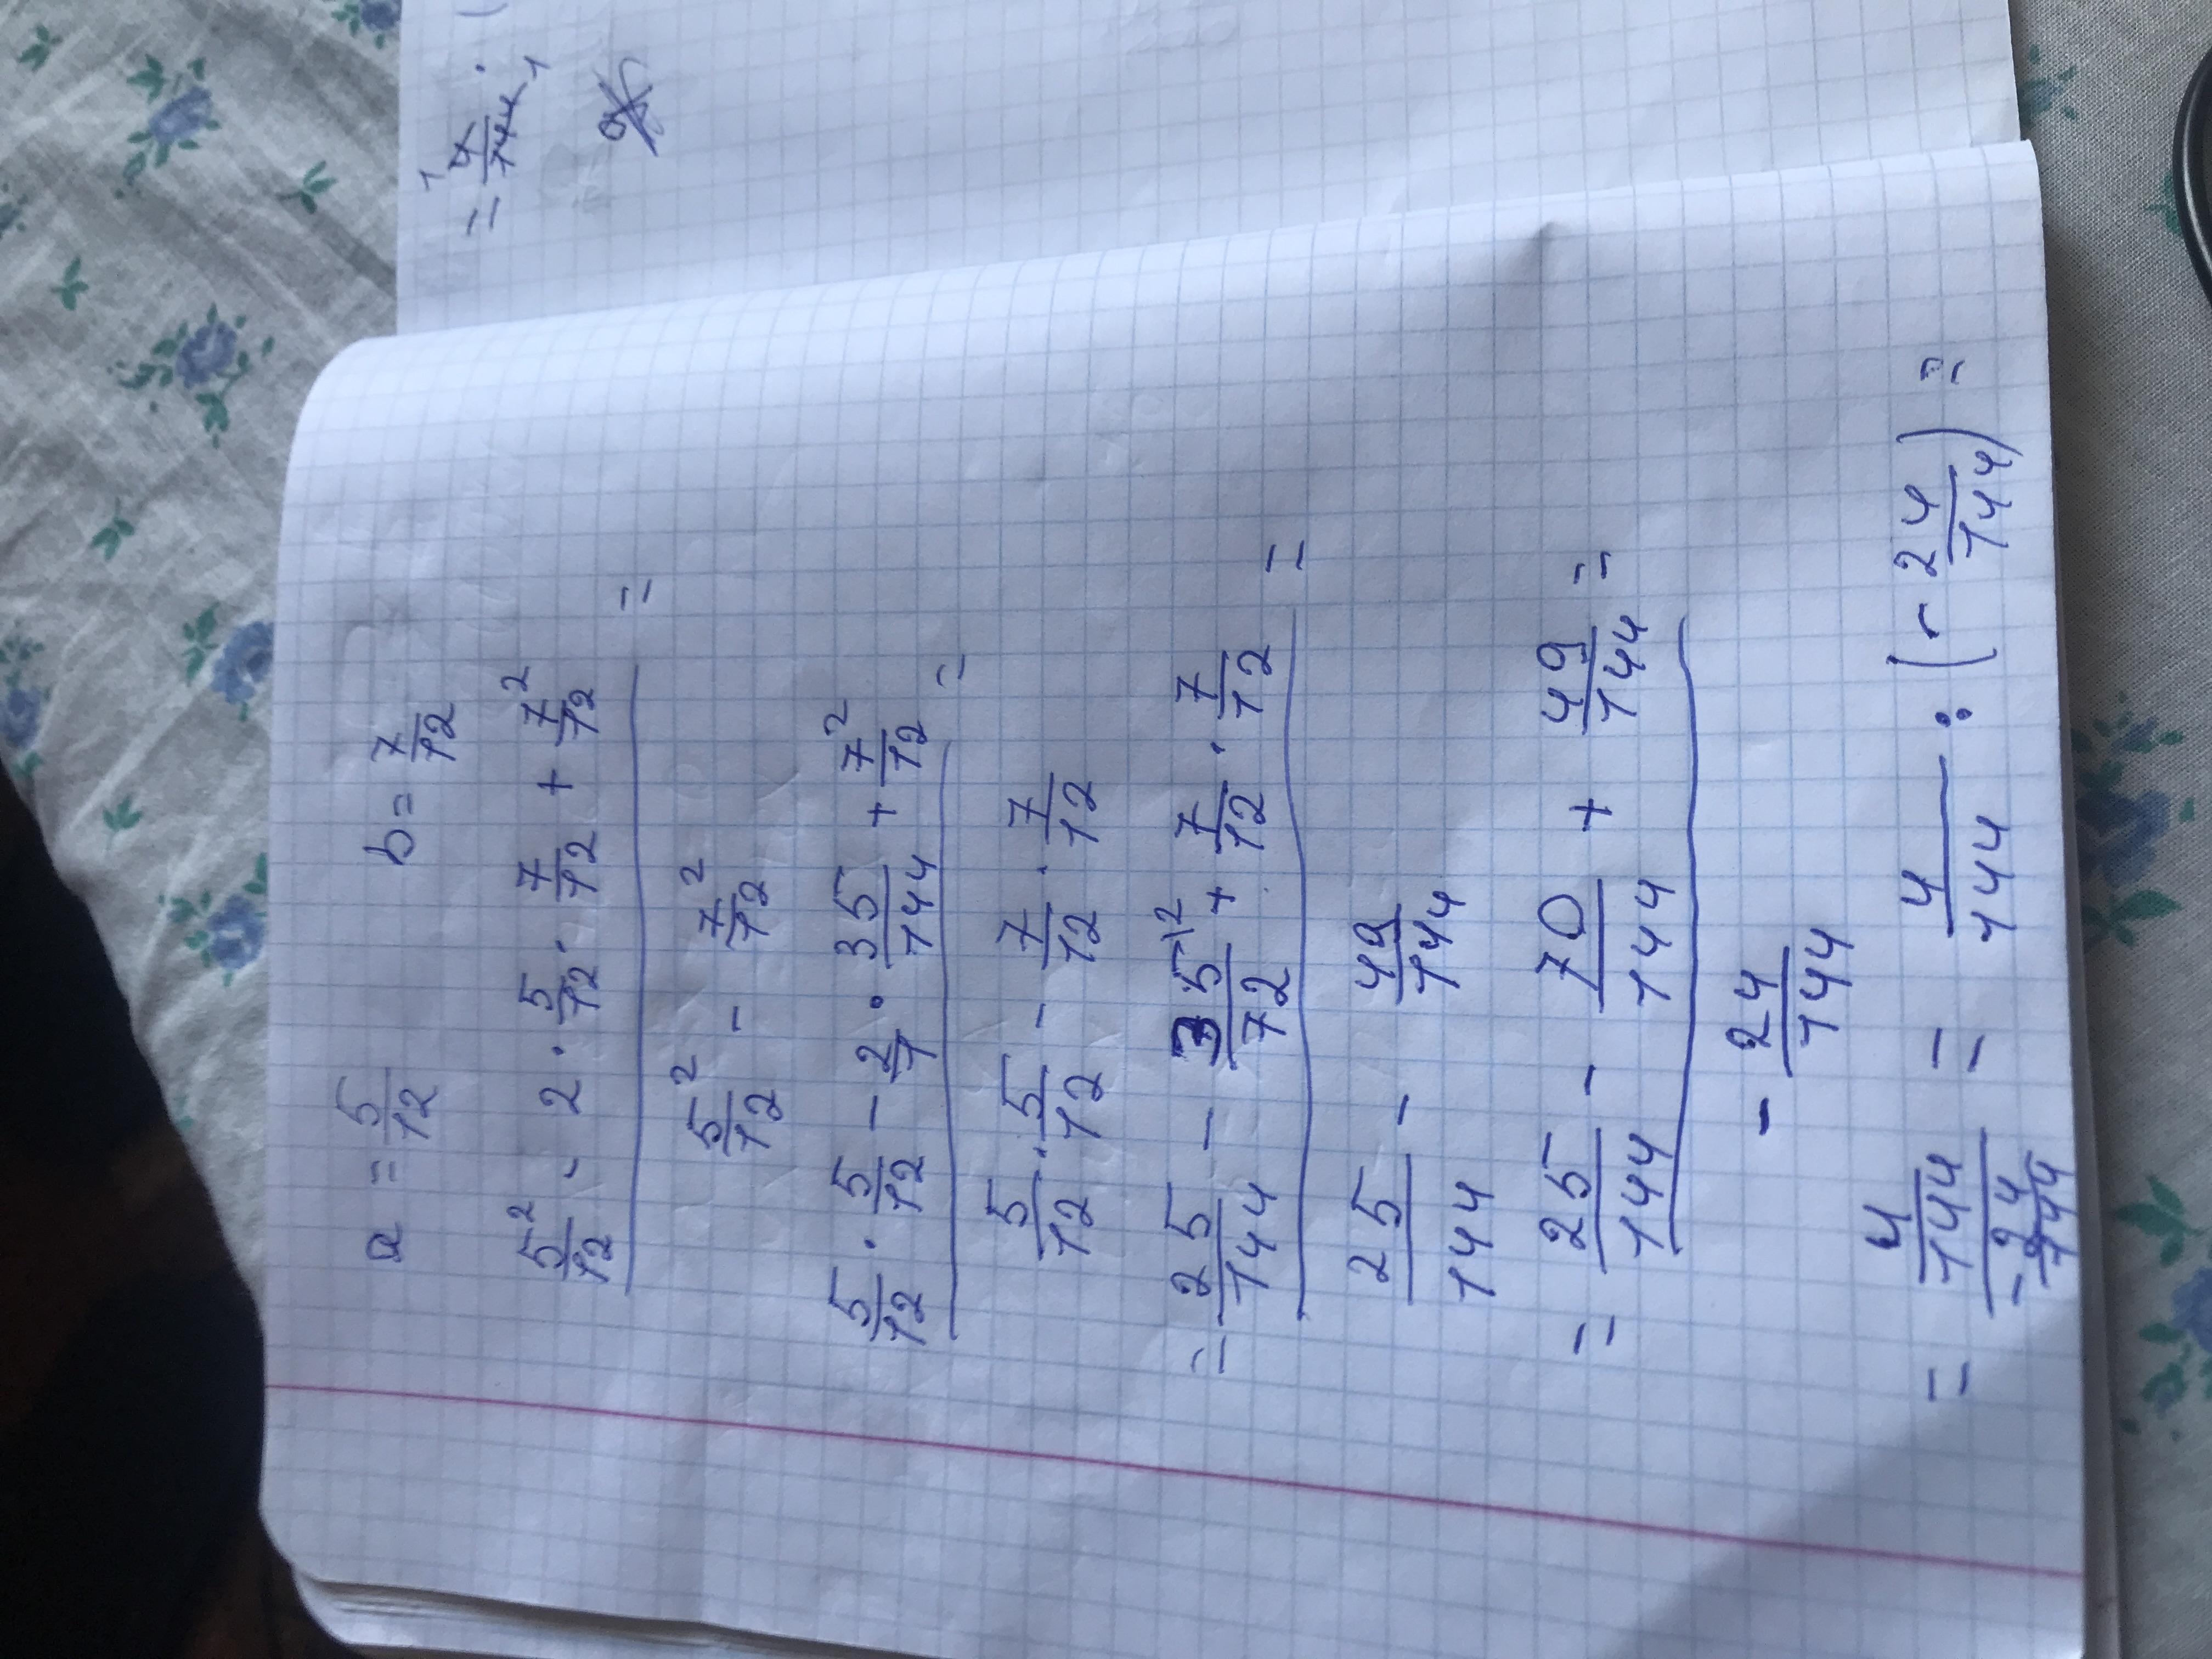 a = 5/12    b = 7/12
5²/12 - 2 · 5/12 · 7/12 + 7²/12
=
5²/12 - 7²/12
5/12 · 5/12 - 2/1 · 35/144 + 7²/12
=
5/12 · 5/12 - 7/12 · 7/12
= 25/144 - 35^\2/72 + 7/12 · 7/12
=
25/144 - 49/144
= 25/144 - 70/144 + 49/144 =
- 24/144
= 4/144 / - 24/144 = 4/144 : (- 24/144) =
= 4/144 ·